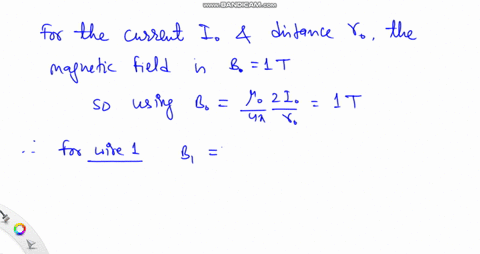 WWW.BANDICAM.COM
For the current I₀ & distance r₀, the
magnetic field is B₀ = 1 T
so using B₀ = μ₀/4π 2I₀/r₀ = 1 T
∴ for wire 1 B₁ =